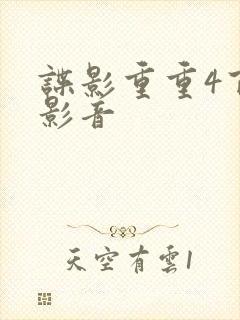 諜影重重4
影音
天空有雲1